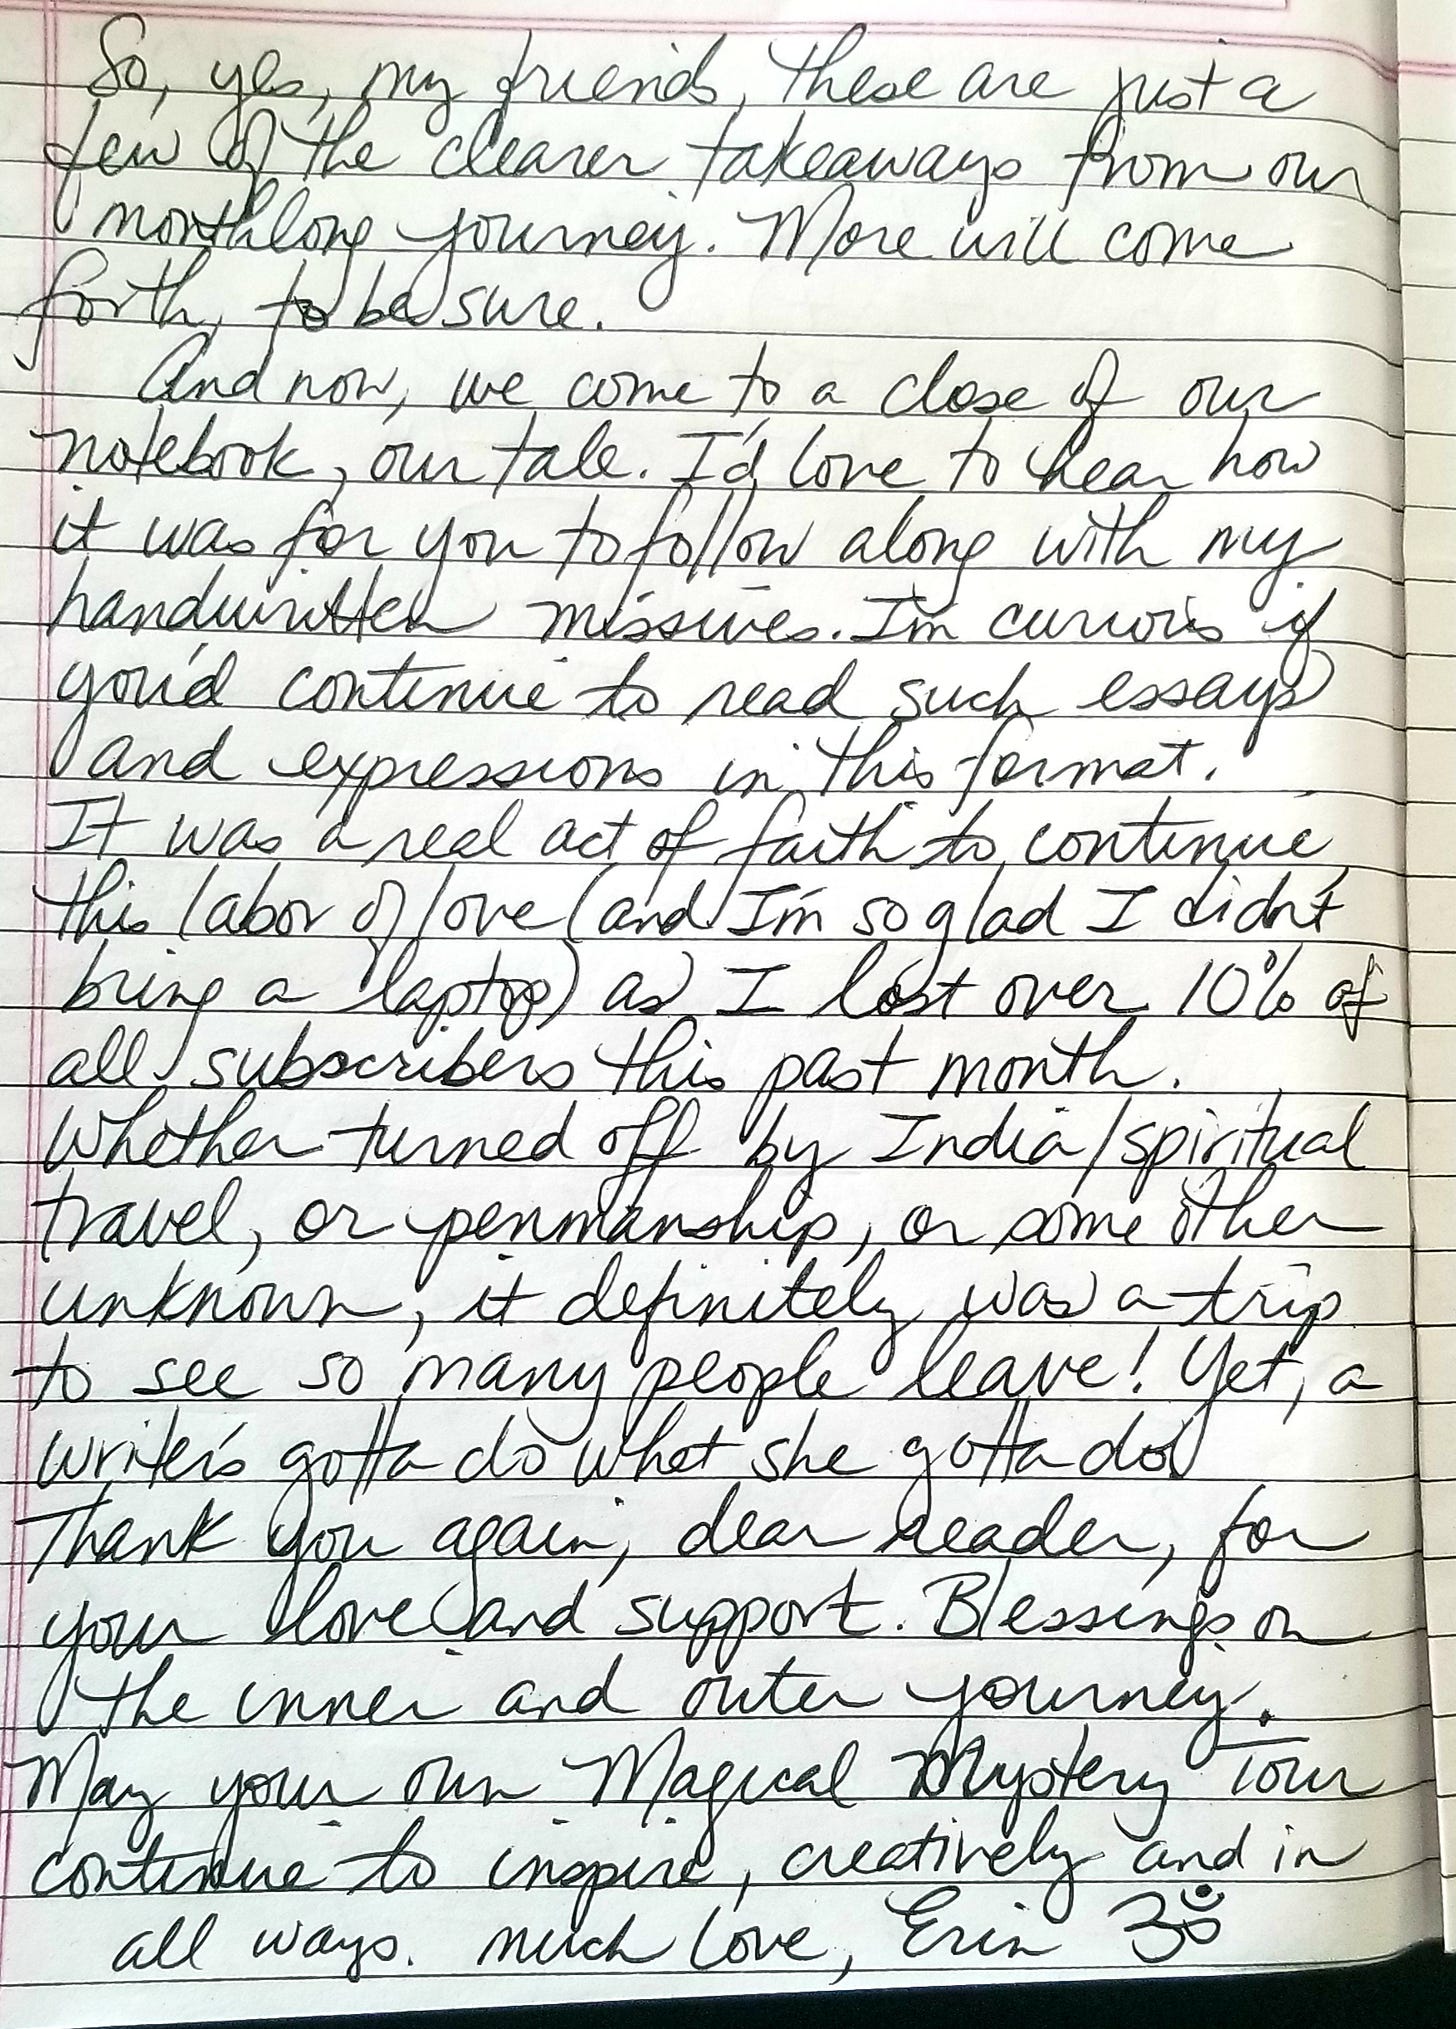 So, yes, my friends, these are just a
few of the clearer takeaways from our
monthlong journey. More will come
forth, to be sure.
And now, we come to a close of our
notebook, our tale. I'd love to hear how
it was for you to follow along with my
handwritten missives. I'm curious if
you'd continue to read such essays
and expressions in this format.
It was a real act of faith to continue
this labor of love (and I'm so glad I didn't
bring a laptop) as I lost over 10% of
all subscribers this past month.
Whether turned off by India/spiritual
travel, or penmanship, or some other
unknown, it definitely was a trip
to see so many people leave! Yet, a
writer's gotta do what she gotta do!
Thank you again, dear reader, for
your love and support. Blessings on
the inner and outer journey.
May your own Magical Mystery Tour
continue to inspire, creatively and in
all ways. much love, Erin ॐ